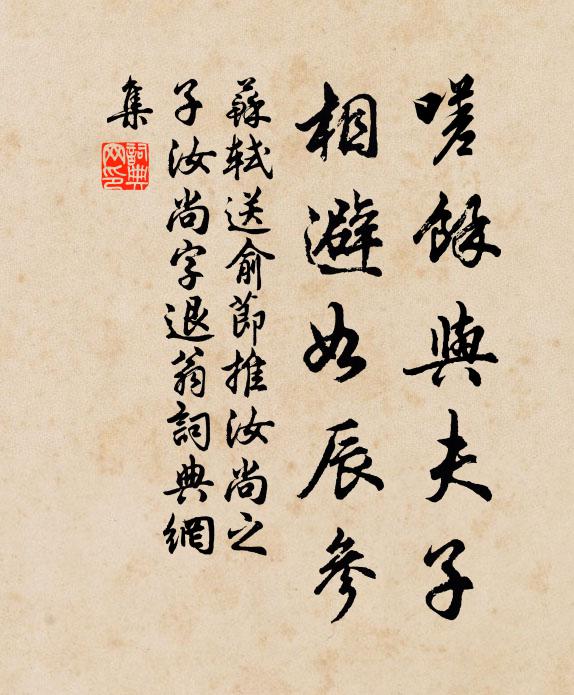 嗟餘與夫子
相避如辰參
蘇軾送俞節推汝尚之
子汝尚字退翁詞典網
集
詞典网印